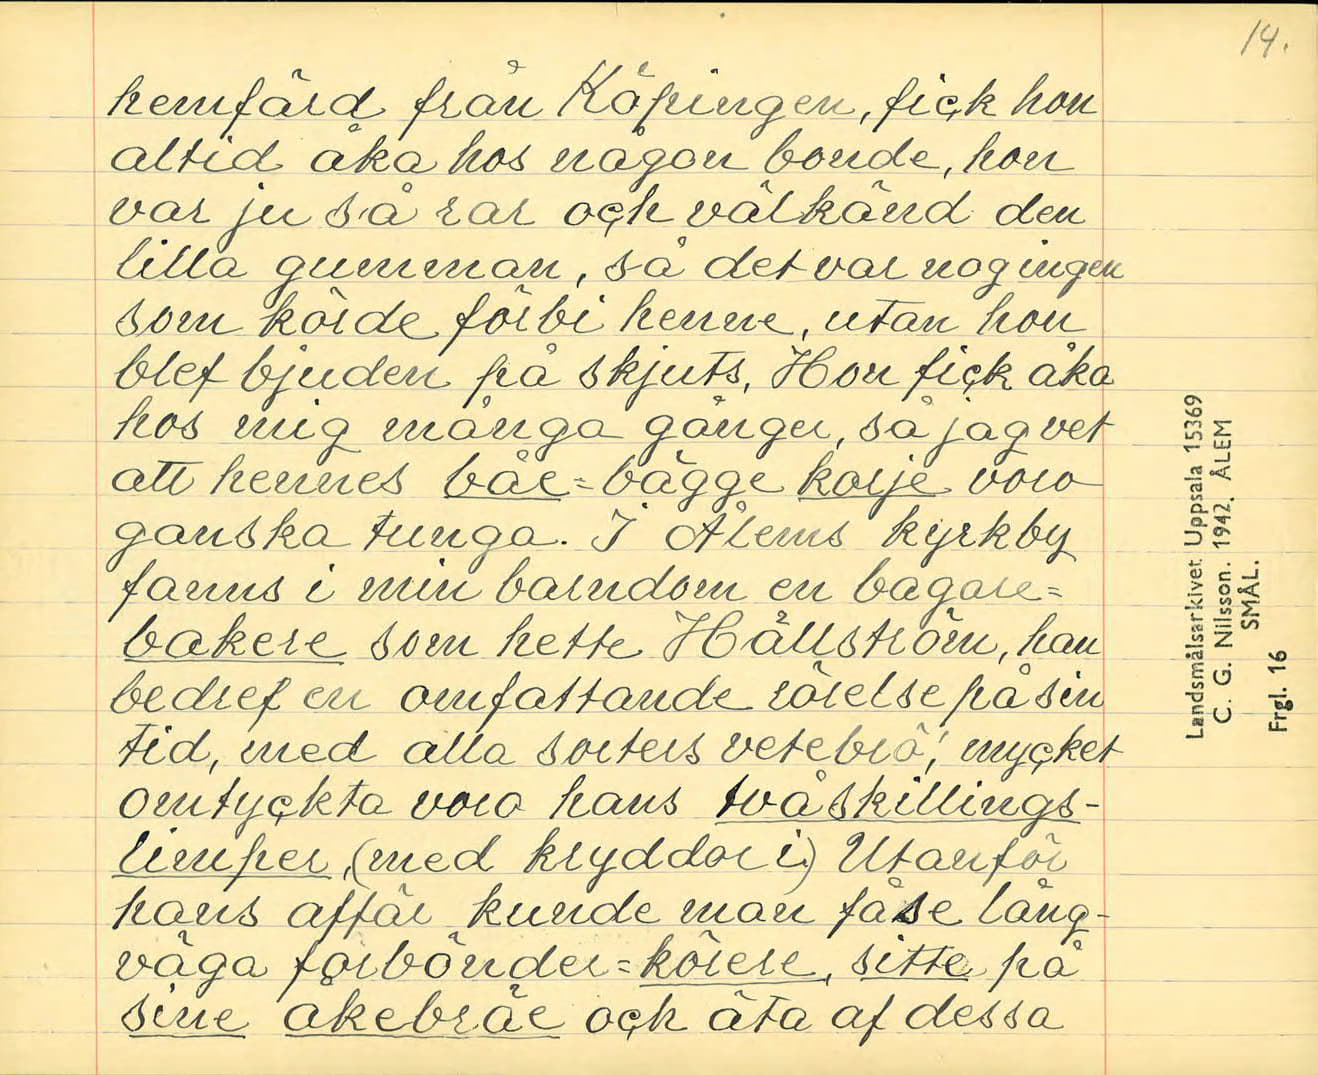 14.
hemfärd från Köpingen, fick hon
altid åka hos någon bonde, hon
var ju så rar och välkänd den
lilla gumman, så det var nog ingen
som körde förbi henne, utan hon
blef bjuden på skjuts, Hon fick åka
hos mig många gånger, så jag vet
att hennes båe=bägge korje voro
ganska tunga. I Ålems kyrkby
fanns i min barndom en bagare=
bakere som hette Hällström, han
bedref en omfattande rörelse på sin
tid, med alla sorters vetebrö! mycket
omtyckta voro hans tvåskillings-
limper, (med kryddor i.) Utanför
hans affär kunde man få se lång-
väga forbönder=körere, sitte på
sine åkebräe och äta af dessa
Landsmålsarkivet Uppsala 15369
C. G. Nilsson. 1942. ÅLEM
SMÅL.
Frgl. 16